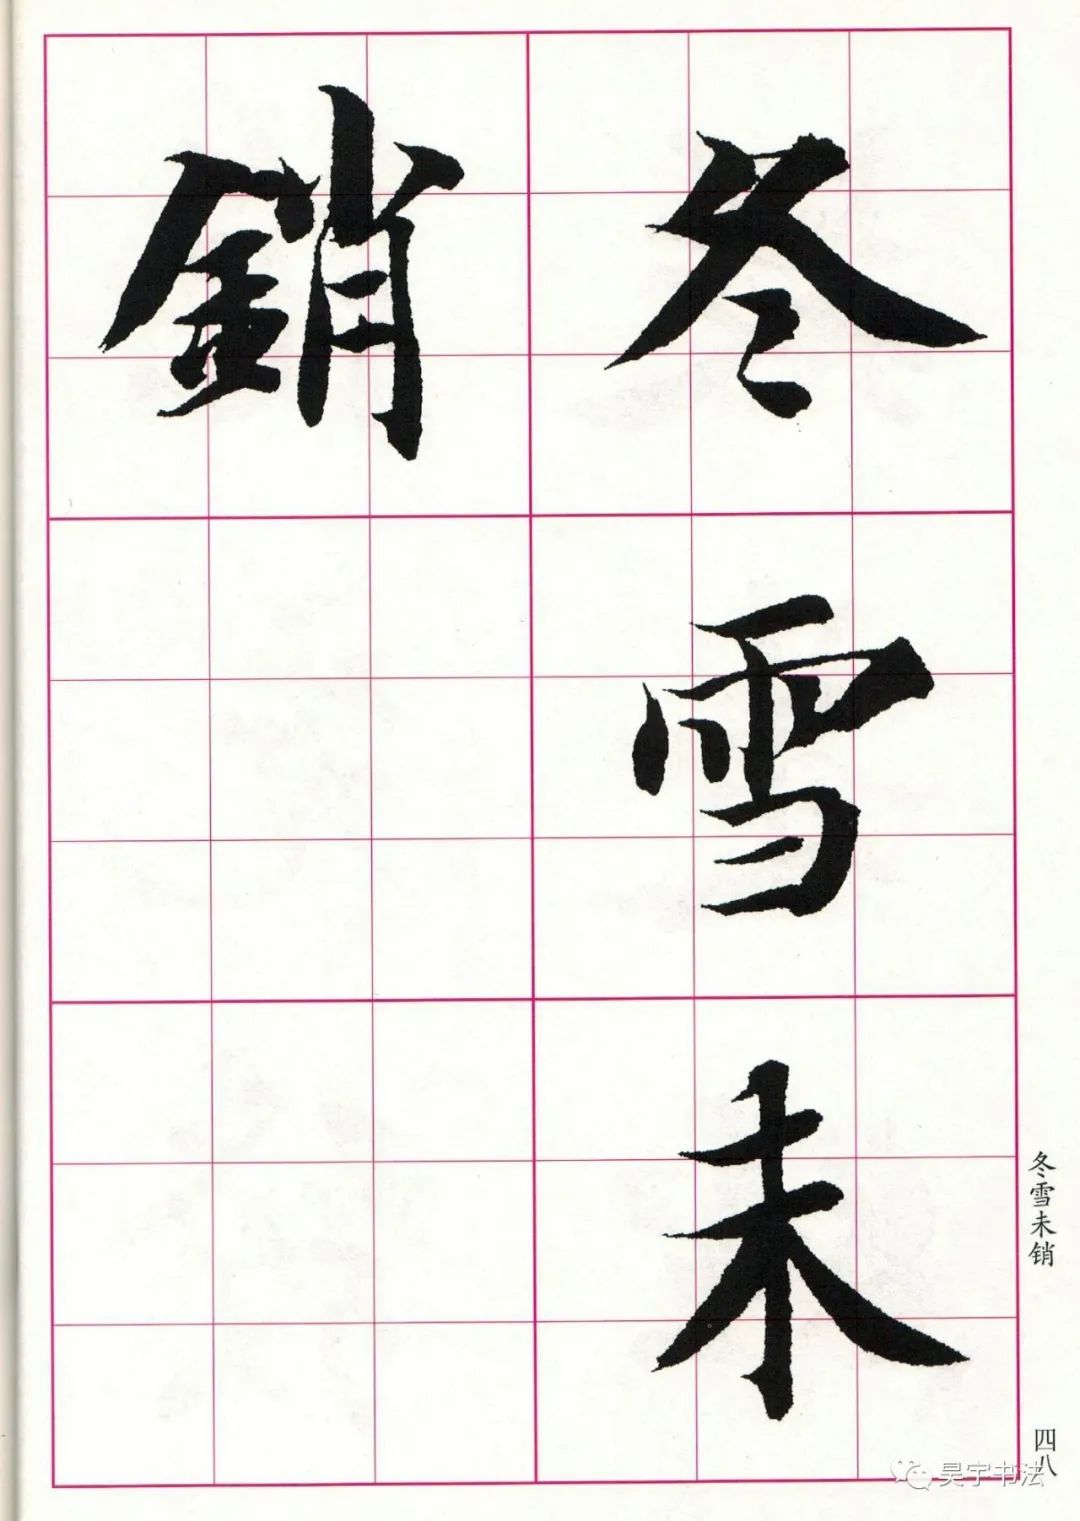 冬雪未
銷
冬雪未销
四八
昊宇书法